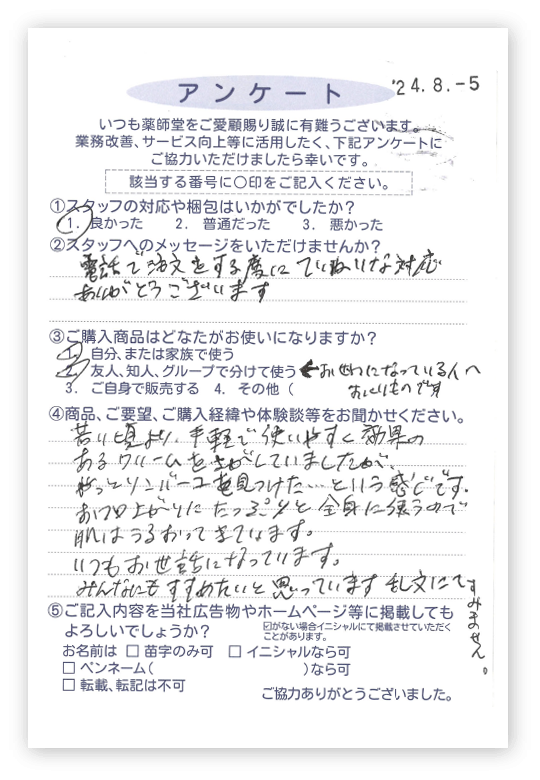 アンケート
'24.8.-5
いつも薬師堂をご愛顧賜り誠に有難うございます。
業務改善、サービス向上等に活用したく、下記アンケートに
ご協力いただけましたら幸いです。
該当する番号に〇印をご記入ください。
①スタッフの対応や梱包はいかがでしたか？
1. 良かった 2. 普通だった 3. 悪かった
②スタッフへのメッセージをいただけませんか？
電話で注文をする度にていねいな対応
ありがとうございます
③ご購入商品はどなたがお使いになりますか？
1. 自分、または家族で使う
2. 友人、知人、グループで分けて使う ←お世わになっている人へ
3. ご自身で販売する 4. その他（ おくりものです
④商品、ご要望、ご購入経緯や体験談等をお聞かせください。
若い頃より、手軽で使いやすく効果の
あるクリームをさがしていましたが、
やっとソンバーユを見つけた…という感じです。
お風呂上がりにたっぷりと全身に使うので
肌はうるおってきています。
いつもお世話になっています。
みんなにもすすめたいと思っています 乱文にてすみません。
⑤ご記入内容を当社広告物やホームページ等に掲載しても
よろしいでしょうか？
☑がない場合イニシャルにて掲載させていただく
ことがあります。
お名前は □ 苗字のみ可 □ イニシャルなら可
□ ペンネーム（ ）なら可
□ 転載、転記は不可
ご協力ありがとうございました。